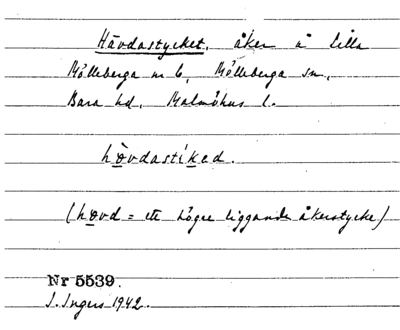 Hävdastycket, åker å Lilla
Mölleberga nr 6, Mölleberga sn,
Bara hd, Malmöhus l.
hövdastiked.
(hövd = ett högre liggande åkerstycke)
Nr 5539.
I. Ingers 1942.